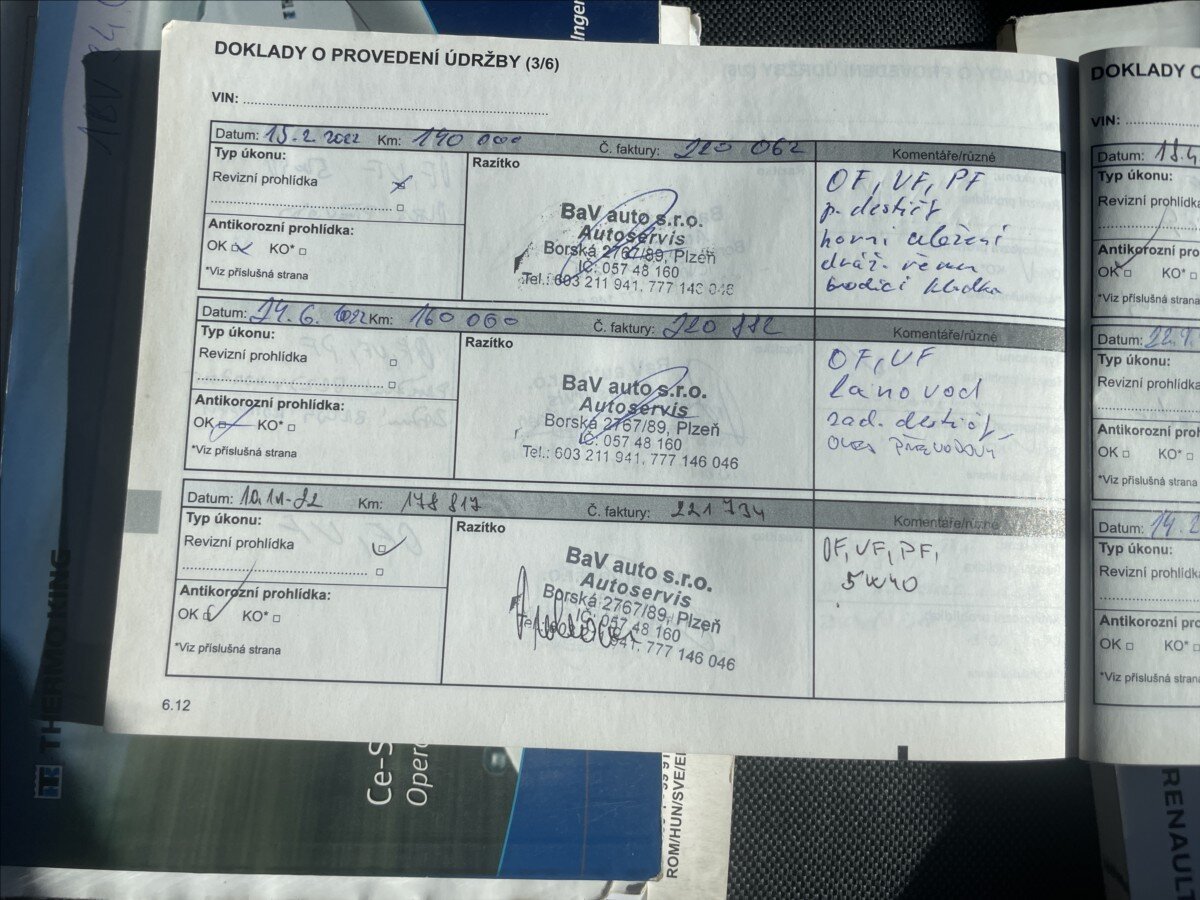 DOKLADY O PROVEDENÍ ÚDRŽBY (3/6)
VIN:
Datum: 15.2.2022 Km: 140 000 Č. faktury: 220 062 Komentáře/různé
Typ úkonu:
Revizní prohlídka
Antikorozní prohlídka:
OK KO*
*Viz příslušná strana
Razítko
BaV auto s.r.o.
Autoservis
Borská 2767/89, Plzeň
IČ: 057 48 160
Tel.: 603 211 941, 777 146 046
OF, VF, PF
p. destičky
horní uložení
dráž. řemen
vodící kladka
Datum: 24.6.2022 Km: 160 000 Č. faktury: 220 882 Komentáře/různé
Typ úkonu:
Revizní prohlídka
Antikorozní prohlídka:
OK KO*
*Viz příslušná strana
Razítko
BaV auto s.r.o.
Autoservis
Borská 2767/89, Plzeň
IČ: 057 48 160
Tel.: 603 211 941, 777 146 046
OF, VF
zad. destičky
Datum: 10.11-22 Km: 178 817 Č. faktury: 221 734 Komentáře/různé
Typ úkonu:
Revizní prohlídka
Antikorozní prohlídka:
OK KO*
*Viz příslušná strana
Razítko
BaV auto s.r.o.
Autoservis
Borská 2767/89, Plzeň
IČ: 057 48 160
941, 777 146 046
OF, VF, PF,
5W40
6.12
DOKLADY O
VIN:
Datum: 18.4
Typ úkonu:
Revizní prohlídka
Antikorozní pro
OK KO*
*Viz příslušná stran
Datum: 22.9.
Typ úkonu:
Revizní prohlídk
Antikorozní proh
OK KO*
*Viz příslušná strana
Datum: 14.2
Typ úkonu:
Revizní prohlídka
Antikorozní pro
OK KO*
*Viz příslušná strana
THERMO KING
Ce-S
Opera
ROM/HUN/SVE/EL
RENAULT
Inger